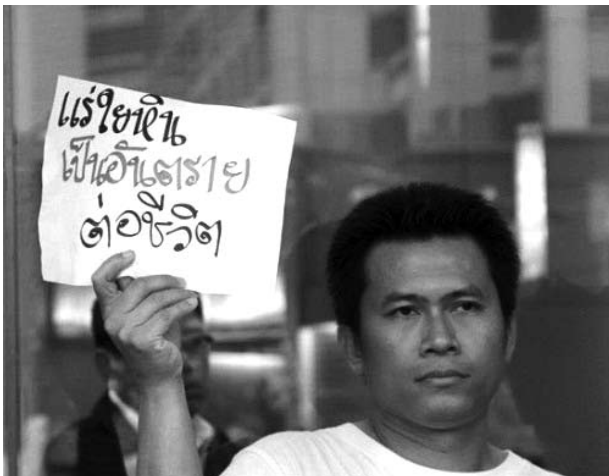 แร่ใยหิน
เป็นอันตราย
ต่อชีวิต